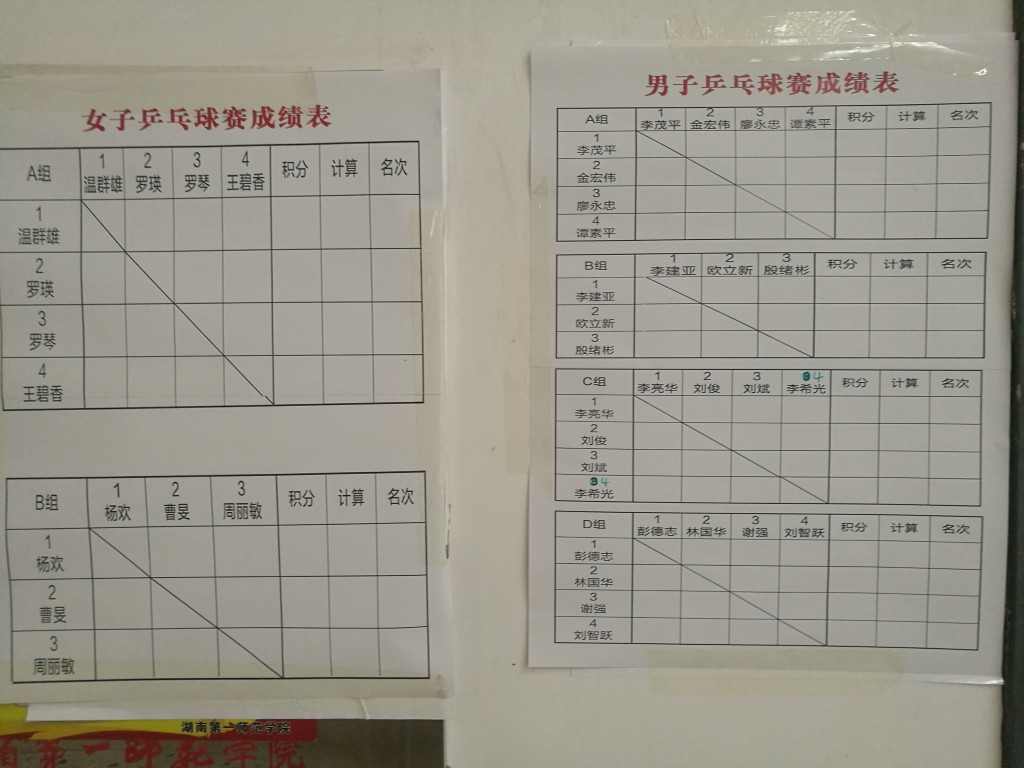 女子乒乓球赛成绩表
A组 1 2 3 4 积分 计算 名次
温群雄 罗瑛 罗琴 王碧香
1
温群雄
2
罗瑛
3
罗琴
4
王碧香
B组 1 2 3 积分 计算 名次
杨欢 曹旻 周丽敏
1
杨欢
2
曹旻
3
周丽敏
湖南第一师范学院
南第一师范学院
男子乒乓球赛成绩表
A组 1 2 3 4 积分 计算 名次
李茂平 金宏伟 廖永忠 谭素平
1
李茂平
2
金宏伟
3
廖永忠
4
谭素平
B组 1 2 3 积分 计算 名次
李建亚 欧立新 殷绪彬
1
李建亚
2
欧立新
3
殷绪彬
C组 1 2 3 4 积分 计算 名次
李亮华 刘俊 刘斌 李希光
1
李亮华
2
刘俊
3
刘斌
4
李希光
D组 1 2 3 4 积分 计算 名次
彭德志 林国华 谢强 刘智跃
1
彭德志
2
林国华
3
谢强
4
刘智跃